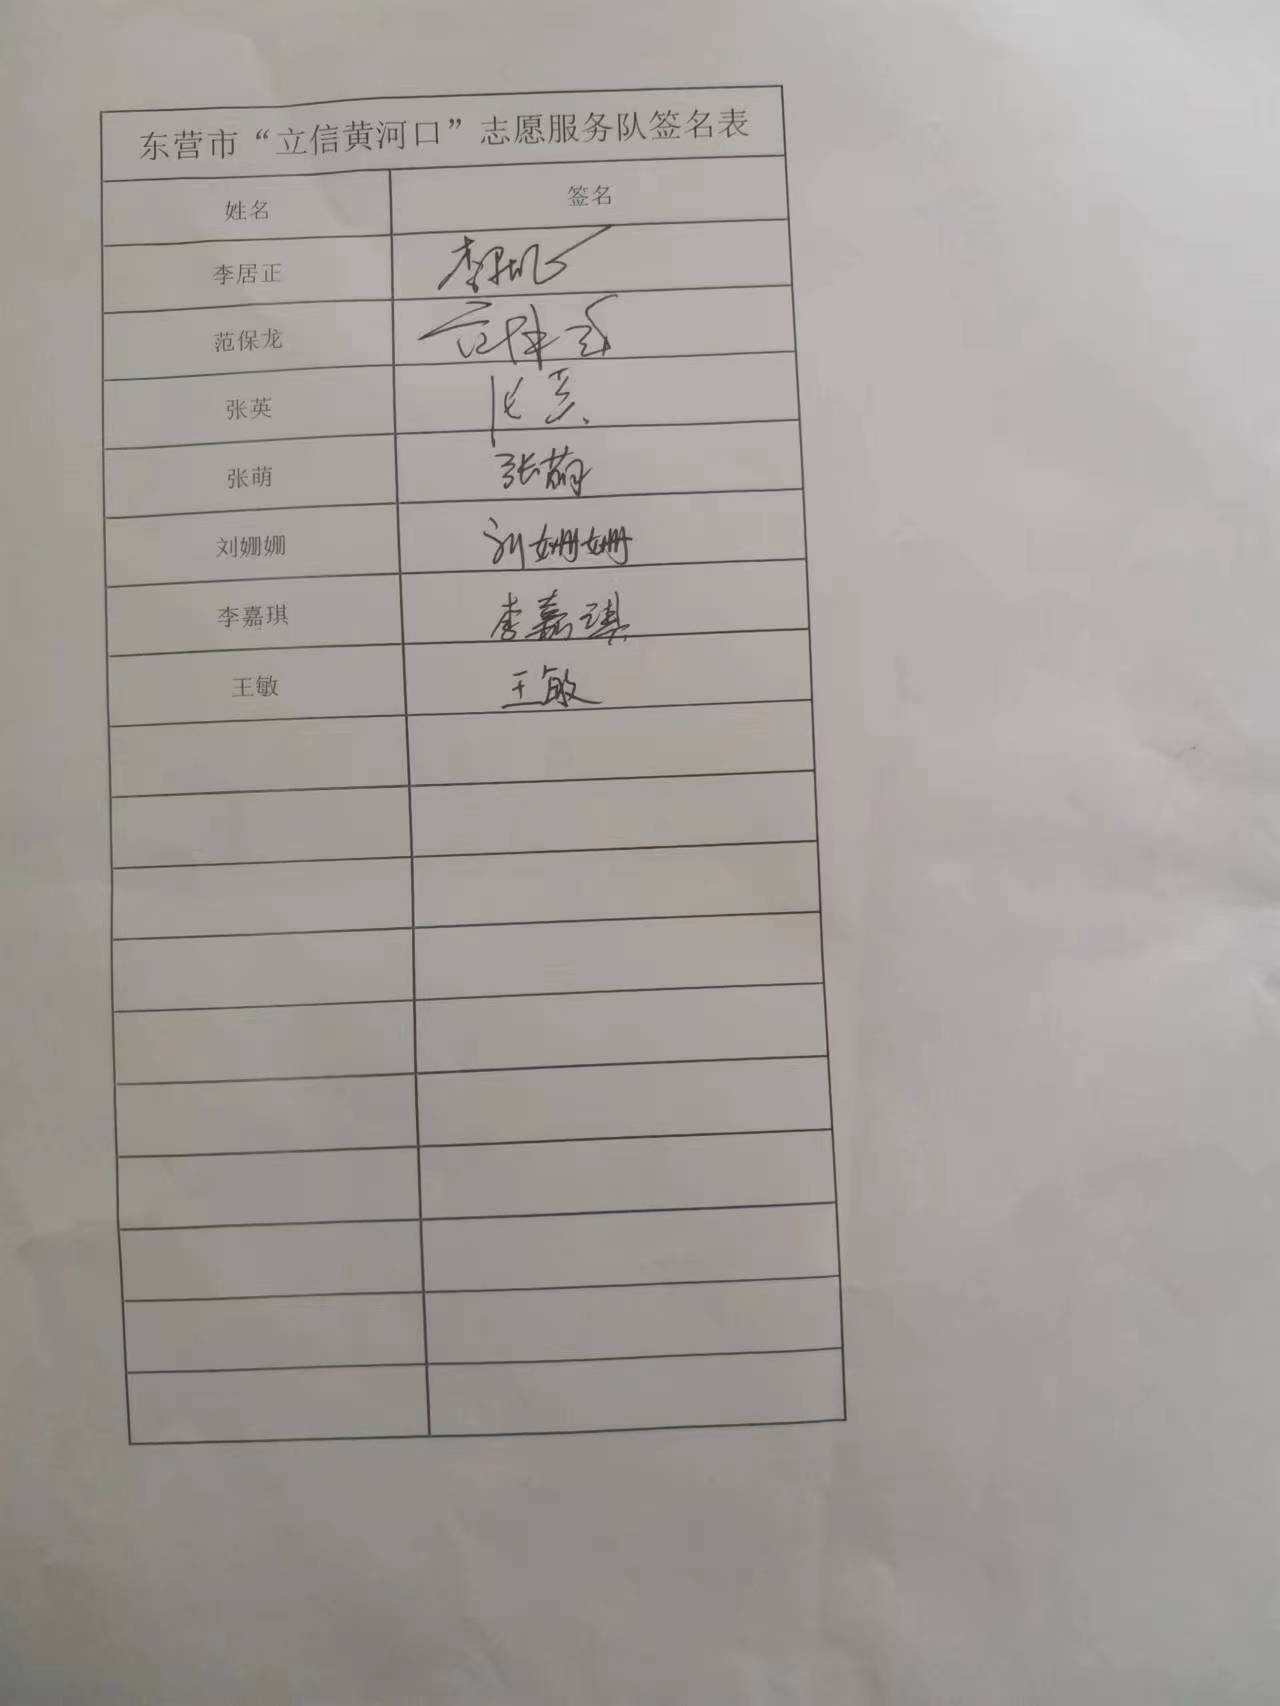 东营市“立信黄河口”志愿服务队签名表
姓名 签名
李居正
范保龙
张英 张英
张萌 张萌
刘姗姗 刘姗姗
李嘉琪 李嘉琪
王敏 王敏